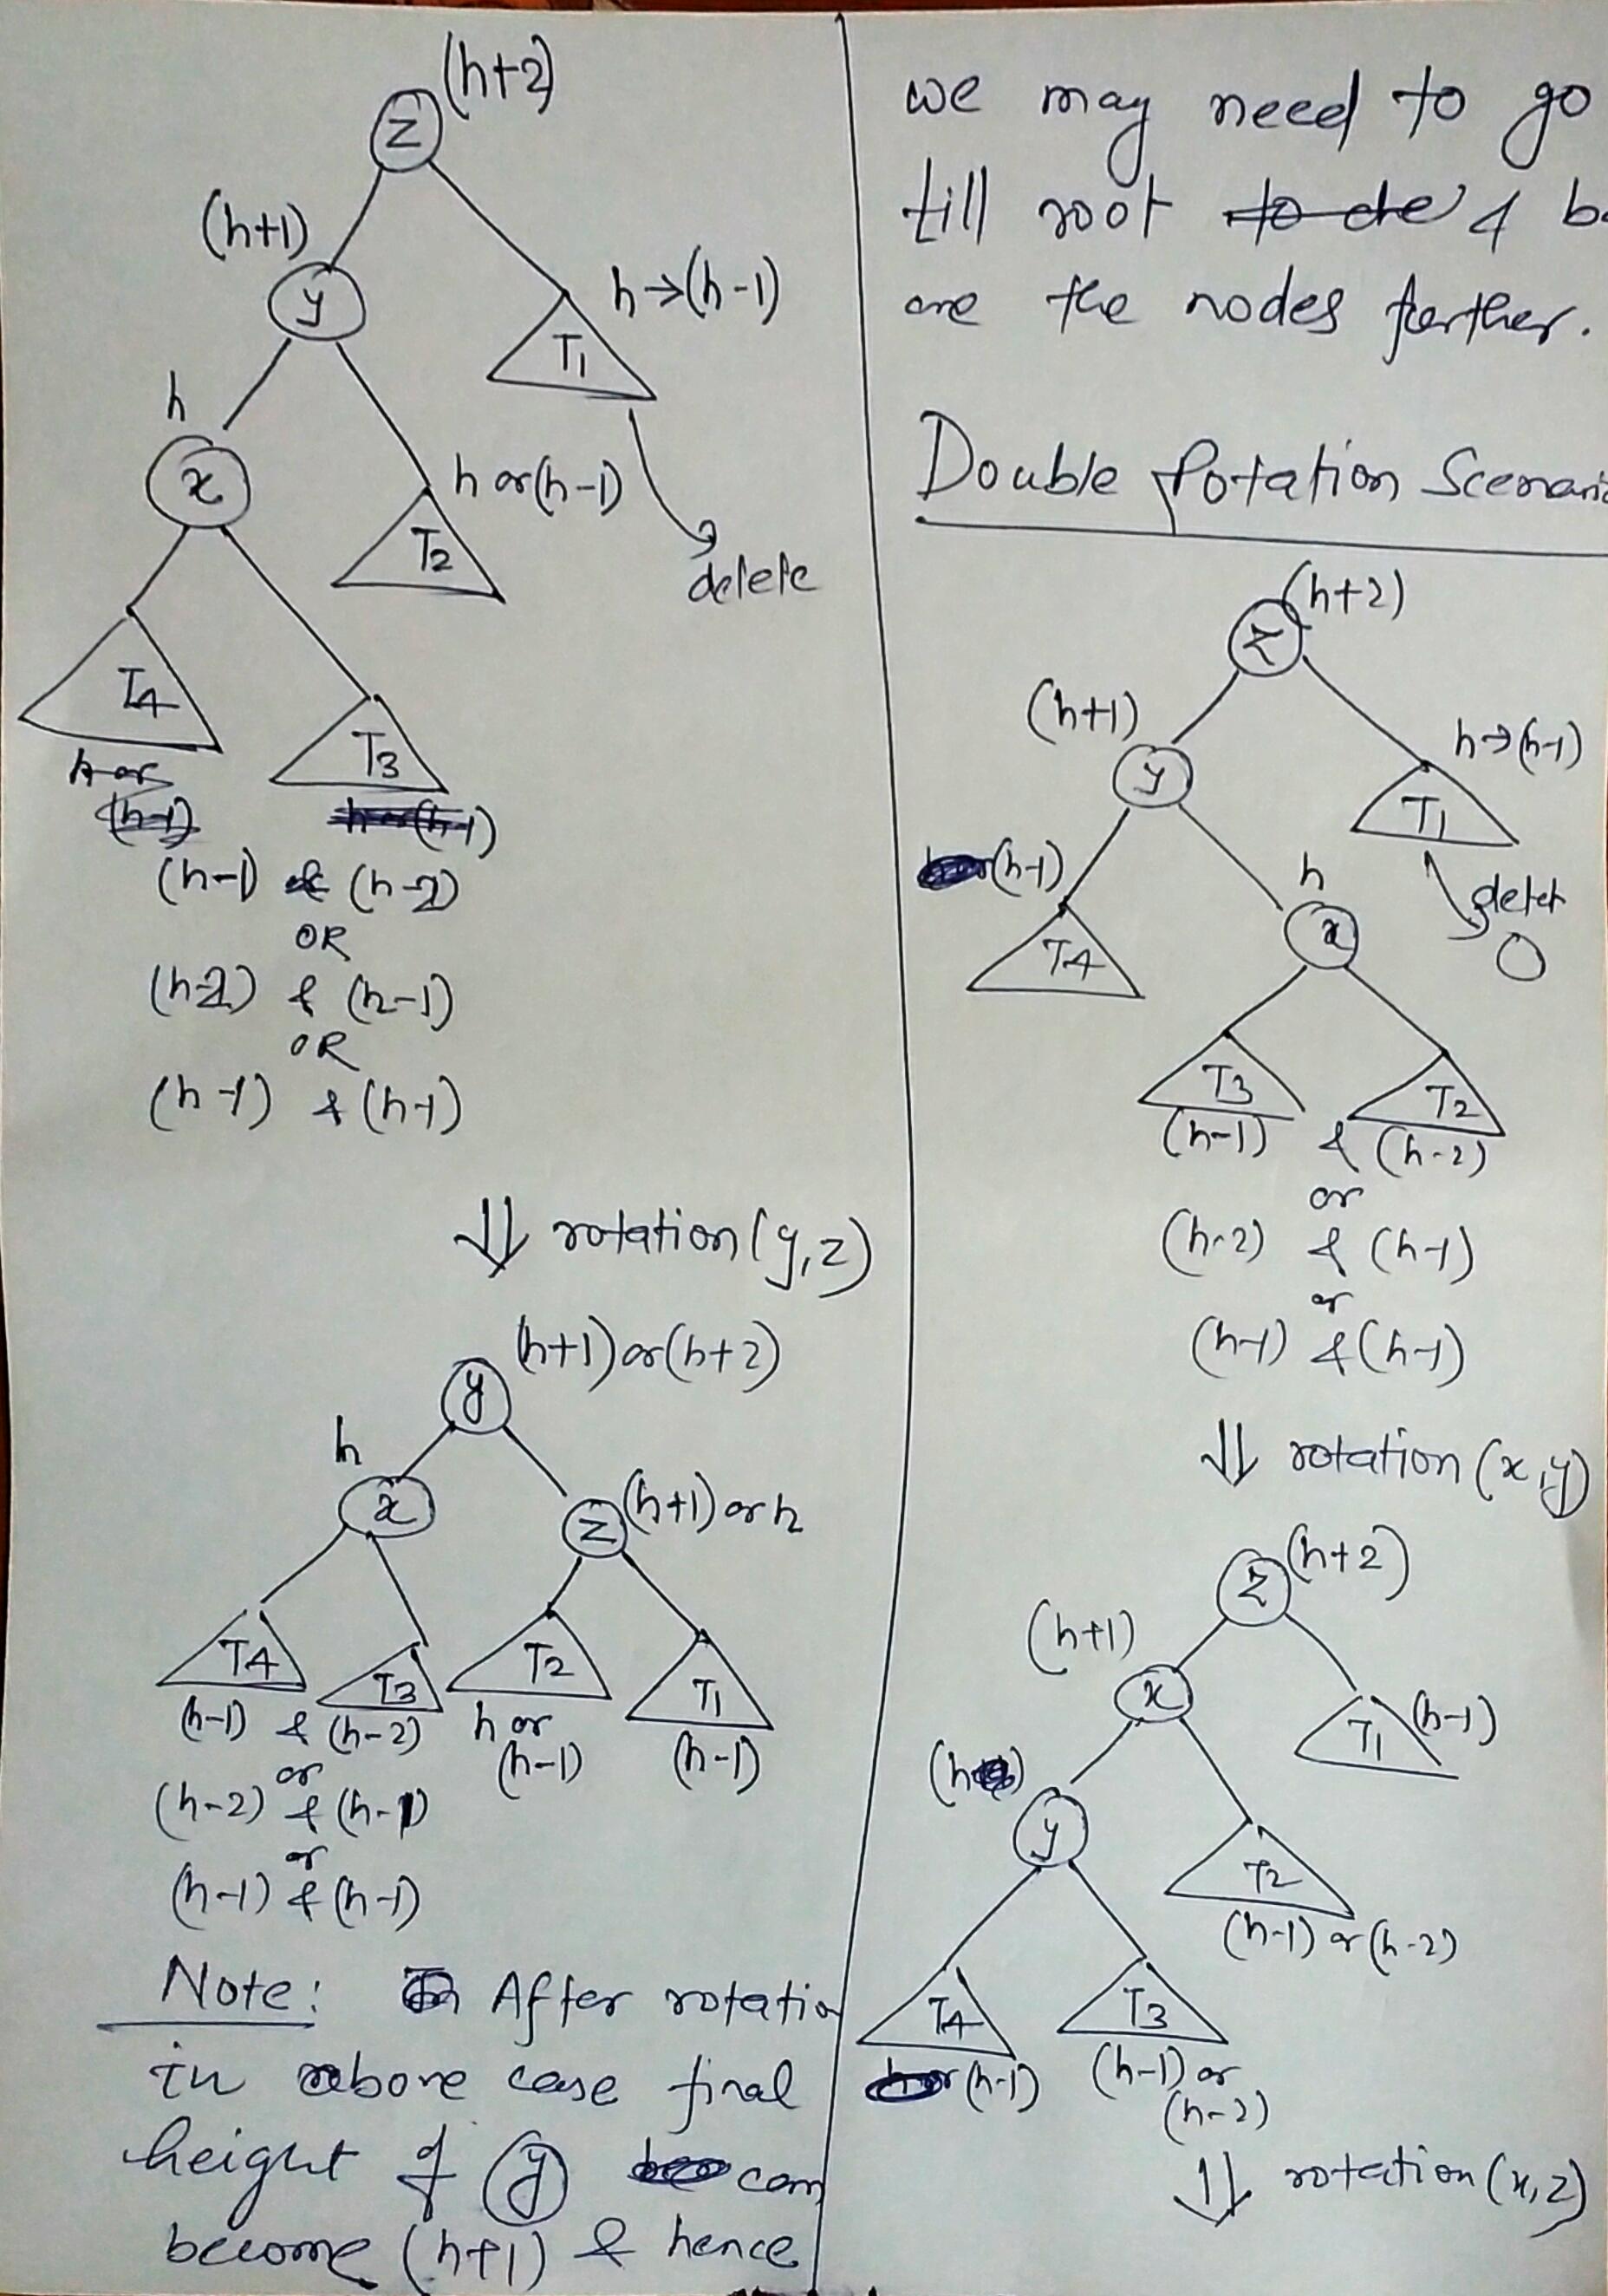 (h+2)
z
(h+1)
y
h→(h-1)
T1
h
x
h or (h-1)
T2
delete
T4
T3
h or
(h-1)
h or (h-1)
(h-1) & (h-2)
OR
(h-2) & (h-1)
OR
(h-1) & (h-1)
⇓ rotation (y,z)
(h+1) or (h+2)
y
h
x
z
(h+1) or h
T4
T3
T2
T1
(h-1) & (h-2)
h or
(h-1)
(h-1)
or
(h-2) & (h-1)
or
(h-1) & (h-1)
Note: After rotation
in above case final
height of y can
become (h+1) & hence
we may need to go
till root to de &
are the nodes further.
Double Rotation Scenario
(h+2)
z
(h+1)
y
h→(h-1)
T1
(h-1)
T4
h
x
delet
T3
T2
(h-1) & (h-2)
or
(h-2) & (h-1)
or
(h-1) & (h-1)
⇓ rotation (x,y)
(h+2)
z
(h+1)
x
T1
(h-1)
(h)
y
T2
(h-1) or (h-2)
T4
T3
or (h-1)
(h-1) or
(h-2)
⇓ rotation (x,z)